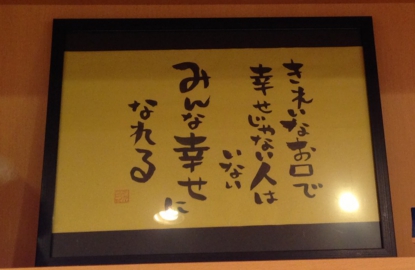 きれいなお口で
幸せじゃない人は
いない
みんな幸せに
なれる